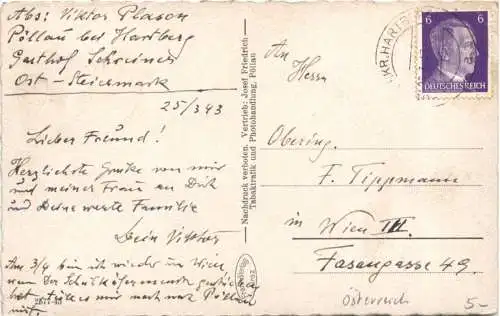 Abs: Viktor Plason
Pöllau bei Hartberg
Gasthof Schreiner
Ost-Steiermark
25/3 43
Lieber Freund!
Herzlichste Grüße von mir
und meiner Frau an Dich
und Deine werte Familie
Dein Viktor
Am 3/4 bin ich wieder in Wien
mich nach Pöllau
Nachdruck verboten. Vertrieb: Josef Friedrich
Tabaktrafik und Photohandlung, Pöllau
KR. HARTB
6 6
DEUTSCHES REICH
An
Herrn
Obering.
F. Tippmann
in Wien III.
Fasangasse 49.
Österreich
5-